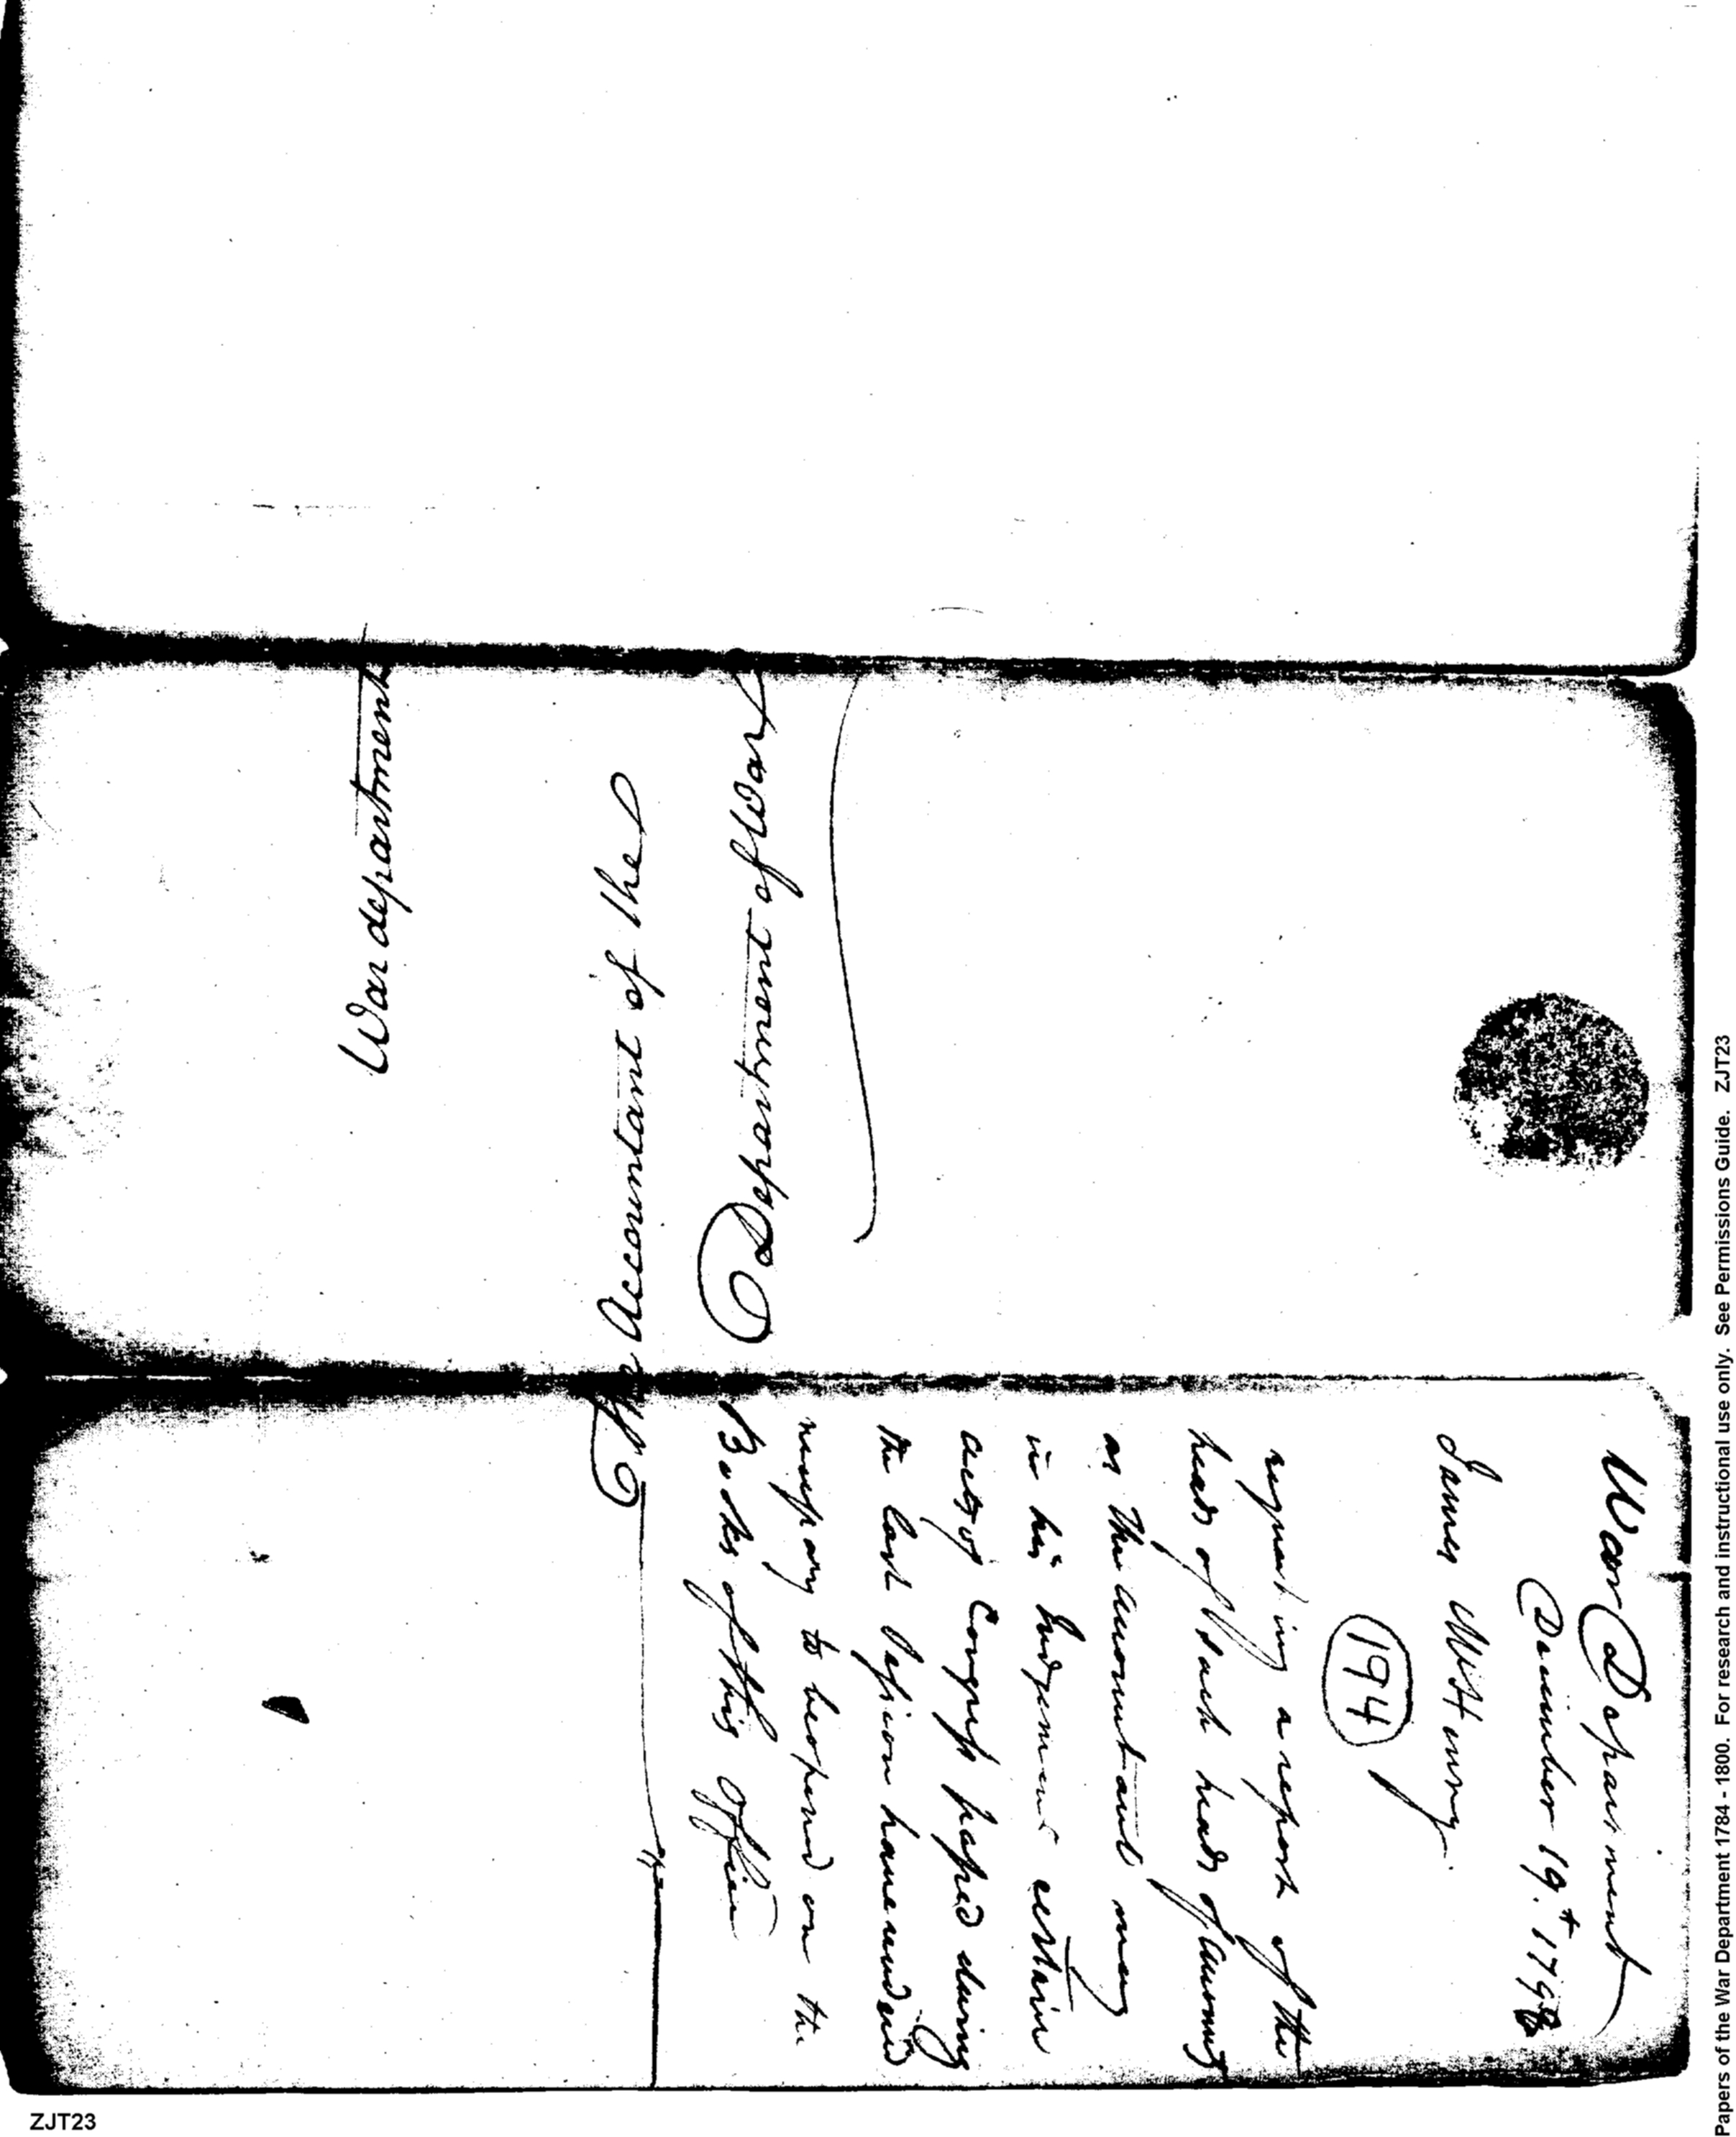 War department
The Accountant of the
Department of War
War Department
December 19.t 1798
James McHenry
194
requesting a report of the
heads of Such heads of Account
as The accountant may
in his Judgement certain
acts of Congress passed during
the last Session have rendered
necessary to be opened on the
Books of this Office
ZJT23
Papers of the War Department 1784 - 1800. For research and instructional use only. See Permissions Guide. ZJT23